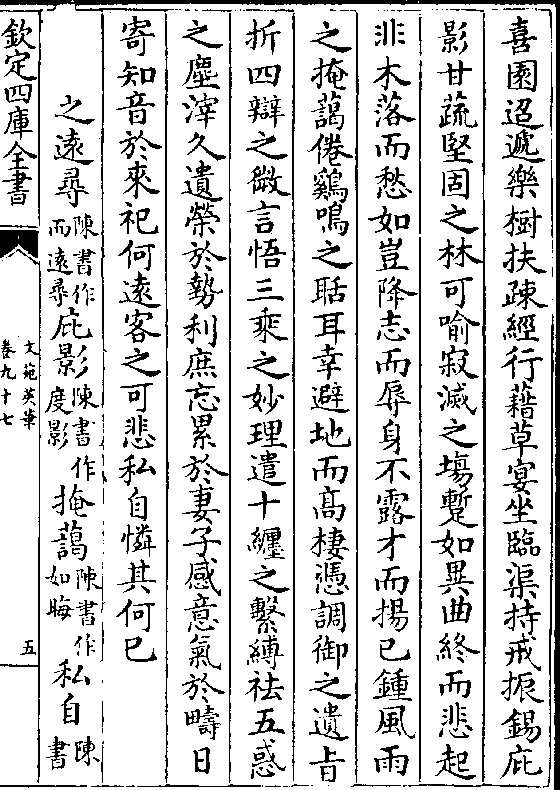 喜園迢遞樂樹扶疎經行藉草宴坐臨渠持戒振錫庇
影甘蔬堅固之林可喻寂滅之塲蹔如異曲終而悲起
非木落而愁如豈降志而辱身不露才而揚已鍾風雨
之掩藹倦鷄鳴之聒耳幸避地而髙棲憑調御之遺旨
折四辯之微言悟三乘之妙理遣十纒之繫縛祛五惑
之塵滓久遺榮於勢利庶忘累於妻子感意氣於疇日
寄知音於來祀何遠客之可悲私自憐其何已
之遠尋陳書作而遠尋庇影陳書作度影掩藹陳書作如晦私自陳書
欽定四庫全書
文苑英華
卷九十七
五